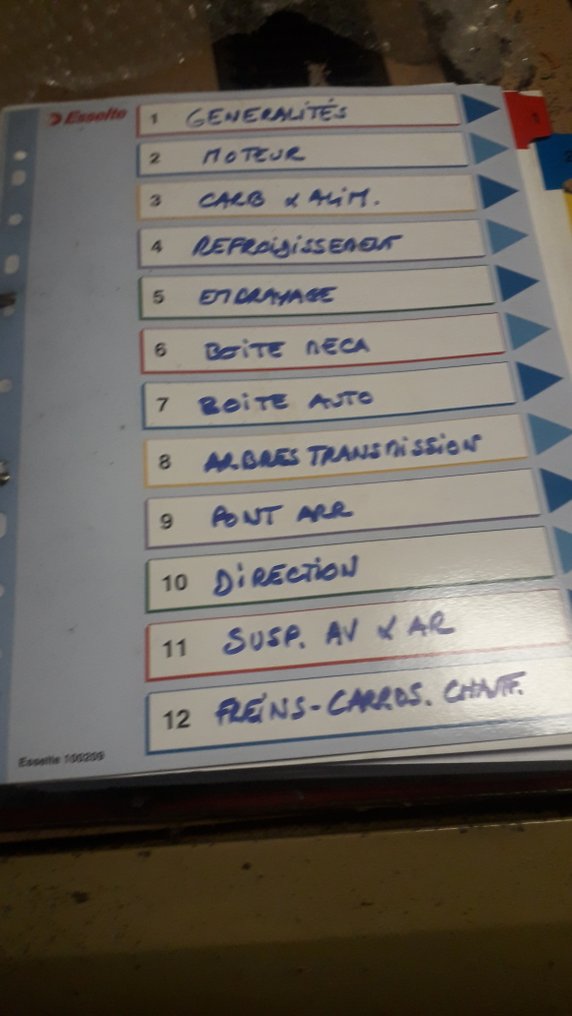 Esselte
1 GENERALITÉS
2 MOTEUR
3 CARB & ALIM.
4 REFROIDISSEMENT
5 EMBRAYAGE
6 BOITE MECA
7 BOITE AUTO
8 ARBRES TRANSMISSION
9 PONT ARR
10 DIRECTION
11 SUSP. AV & AR
12 FREINS-CARROS. CHAUF.
Esselte 100209